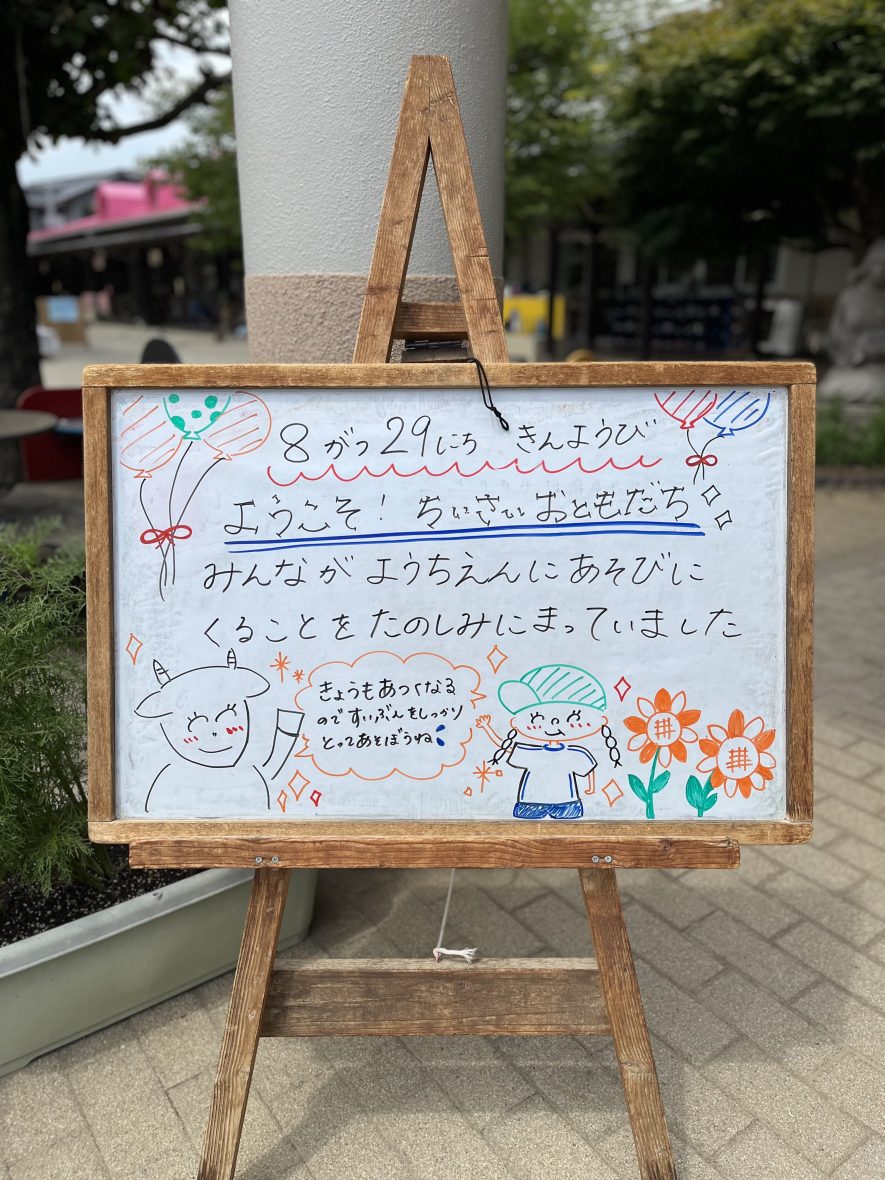 8がつ29にち きんようび
ようこそ! ちいさいおともだち
みんなが ようちえんに あそびに
くることを たのしみにまっていました
きょうもあつくなる
ので すいぶんをしっかり
とってあそぼうね